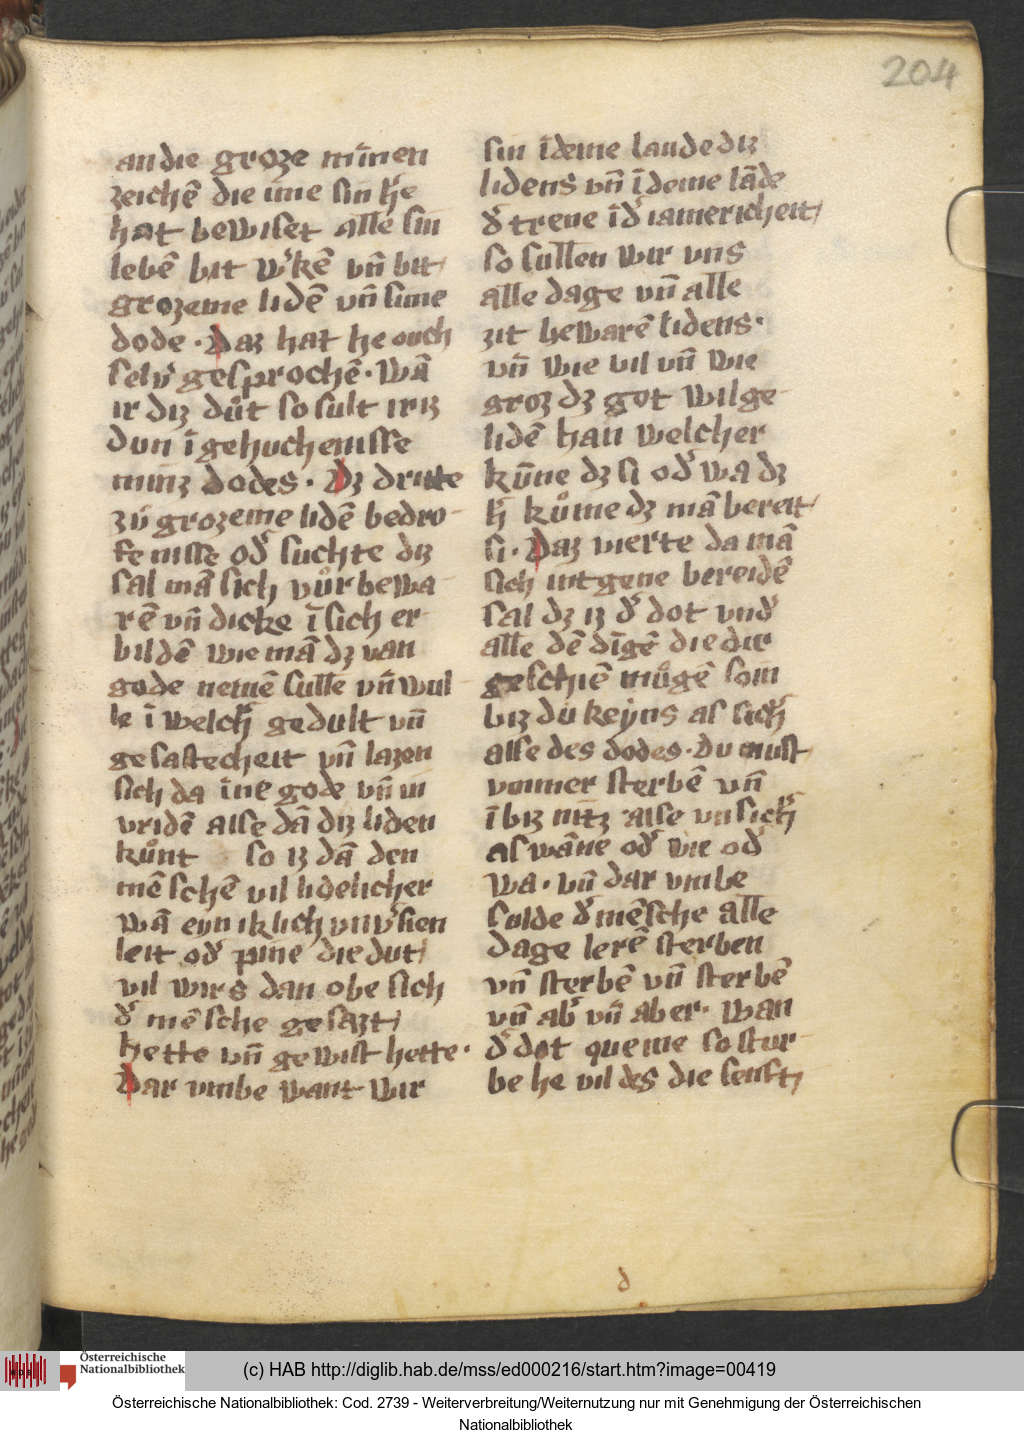 204
an die groze minnen
zeichē die ime sin h̄e
hat bewiset alle sin
lebē bit w'kē vn̄ bit
grozeme lidē vn̄ sime
dode · Daz hat he ouch
selv̄ gesprochē · wā
ir diz důt so sult ir iz
dun ī gehuchenisse
minz dodes · Dz dritte
zů grozeme lidē bedro-
fenisse od̕ suchte diz
sal mā sich vůr bewa-
rē vn̄ dicke ī sich er-
bildē wie mā dz van
gode nemē sulle vn̄ wul-
le ī welch̕ gedult vn̄
gesastecheit vn̄ lazen
sich da īne gode vn̄ in
vridē alse dā diz liden
kůnt so iz dā den
mē schē vil lidelicher
wā eyn iklich vnv̕sien
leit od̕ pine die dut
vil wirs dan obe sich
d̕ mēsche gesazt
hette vn̄ gewist hette ·
Dar vmbe want wir
sin ī deme lande diz
lidens vn̄ ī deme lāde
d̕ trene ī d̕ iamericheit
so sullen wir vns
alle dage vn̄ alle
zit bewarē lidens ·
vn̄ wie vil vn̄ wie
groz dz got wil ge-
lidē han welcher
kūne dz si od̕ wa dz
h̕ kůme dz mā bereit
si · Daz vierte da mā
sich intgene bereidē
sal dz iz d̕ dot vnd̕
alle dē dīgē die dir
geschiē můgē som
biz du keyns as sich̕
alse des dodes · du must
vmmer sterbē vn̄
ī biz nitz alse vnsich̕
as wāne od̕ wie od̕
wa · vn̄ dar vmbe
solde d̕ mēsche alle
dage lerē sterben
vn̄ sterbē vn̄ sterbē
vn̄ ab̕ vn̄ aber · wan
d̕ dot queme so stur-
be he vil des die senft
d
Österreichische
Nationalbibliothek
(c) HAB http://diglib.hab.de/mss/ed000216/start.htm?image=00419
Österreichische Nationalbibliothek: Cod. 2739 - Weiterverbreitung/Weiternutzung nur mit Genehmigung der Österreichischen
Nationalbibliothek